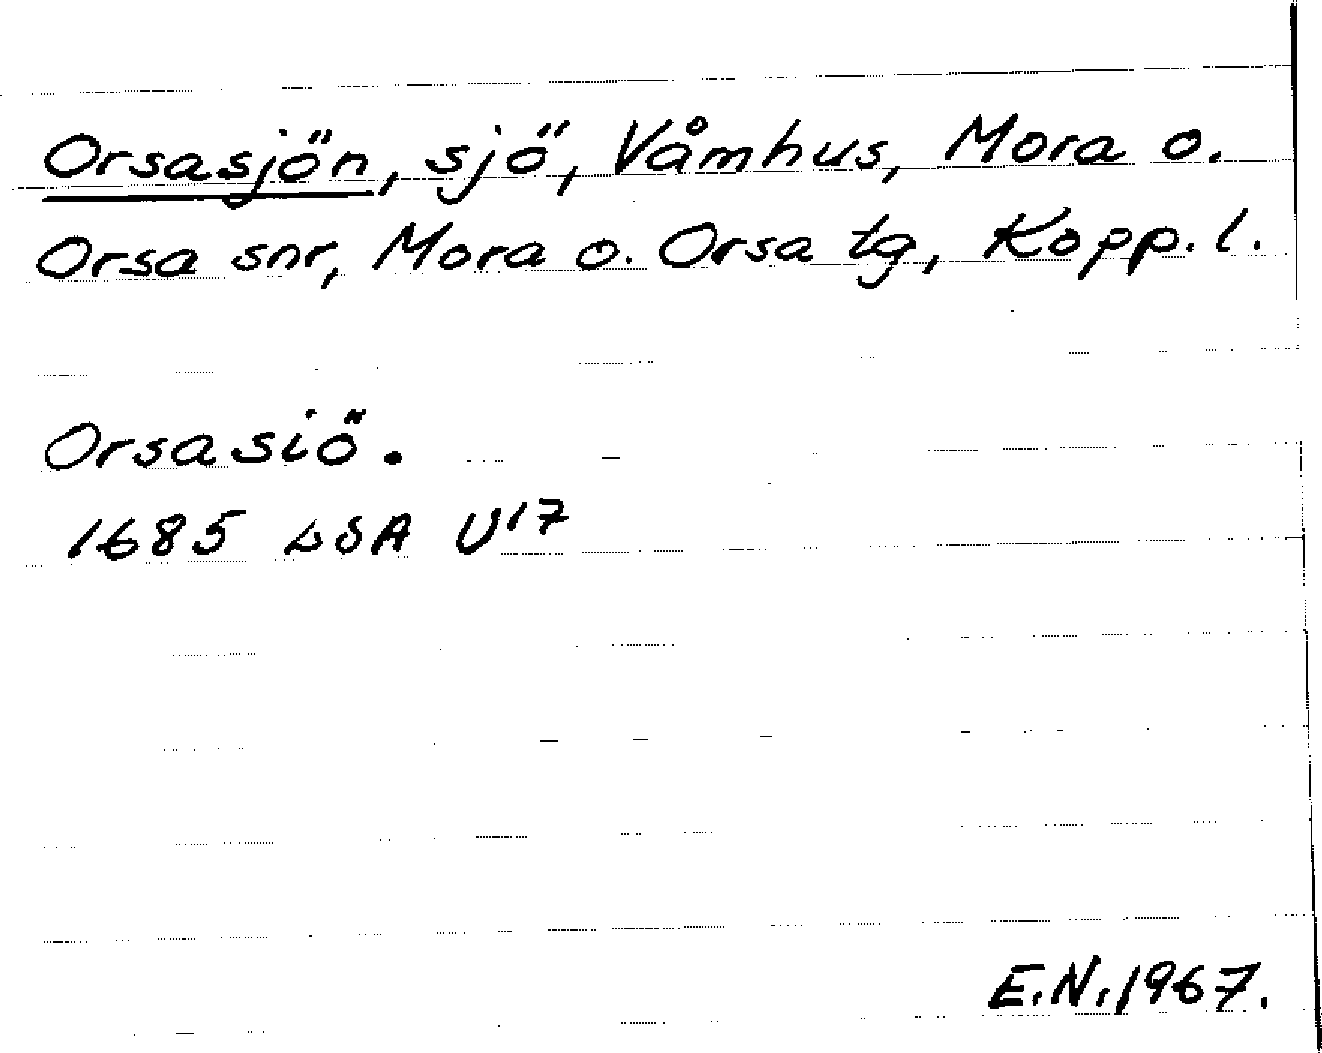 Orsasjön, sjö, Våmhus, Mora o.
Orsa snr, Mora o. Orsa tg, Kopp. l.
Orsasiö.
1685 LSA U17
E.N. 1967.